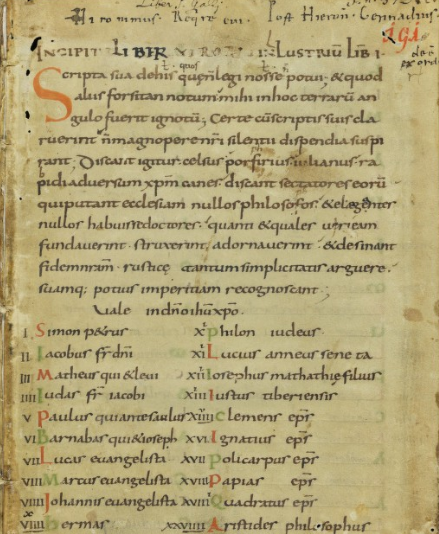 Hieronimus Post Hieron. Gennadius
INCIPIT LIBER VIRORUM ILLUSTRIUM LIBI
Scripta sua de his quę nlegi nosse potui · & quod
alius forsitan notum mihi in hoc terrarum an
gulo fuerit ignotū; Certe cū scriptis suis cla
ruerint n magnopere nri silentii dispendia suspi
rant; Discant igitur celsus porfirius iulianus · ra
pidi adversum xpm canes · discant sectatores eorū
qui putant ecclesiam nullos philosofos · & elegenter
nullos habuisse doctores · quanti & quales viri eam
fundaverint · struxerint · adornaverint · & desinant
fidem nram · rusticę tantum simplicitatis arguere ·
suamq; potius imperitiam recognoscant;
Vale in dno ihu xpo ·
I Simon petrus XI Philon iudeus
II Iacobus fr dni XII Lucius anneus seneca
III Matheus qui & levi XIII Iosephus mathathię filius
IIII Iudas fr iacobi XIIII Iustus tiberiensis
V Paulus qui ante saulus XV Clemens eps
VI Barnabas qui & ioseph XVI Ignatius eps
VII Lucas evangelista XVII Policarpus eps
VIII Marcus evangelista XVIII Papias eps
VIIII Iohannis evangelista XVIIII Quadratus eps
Hermas Aristides philosophus